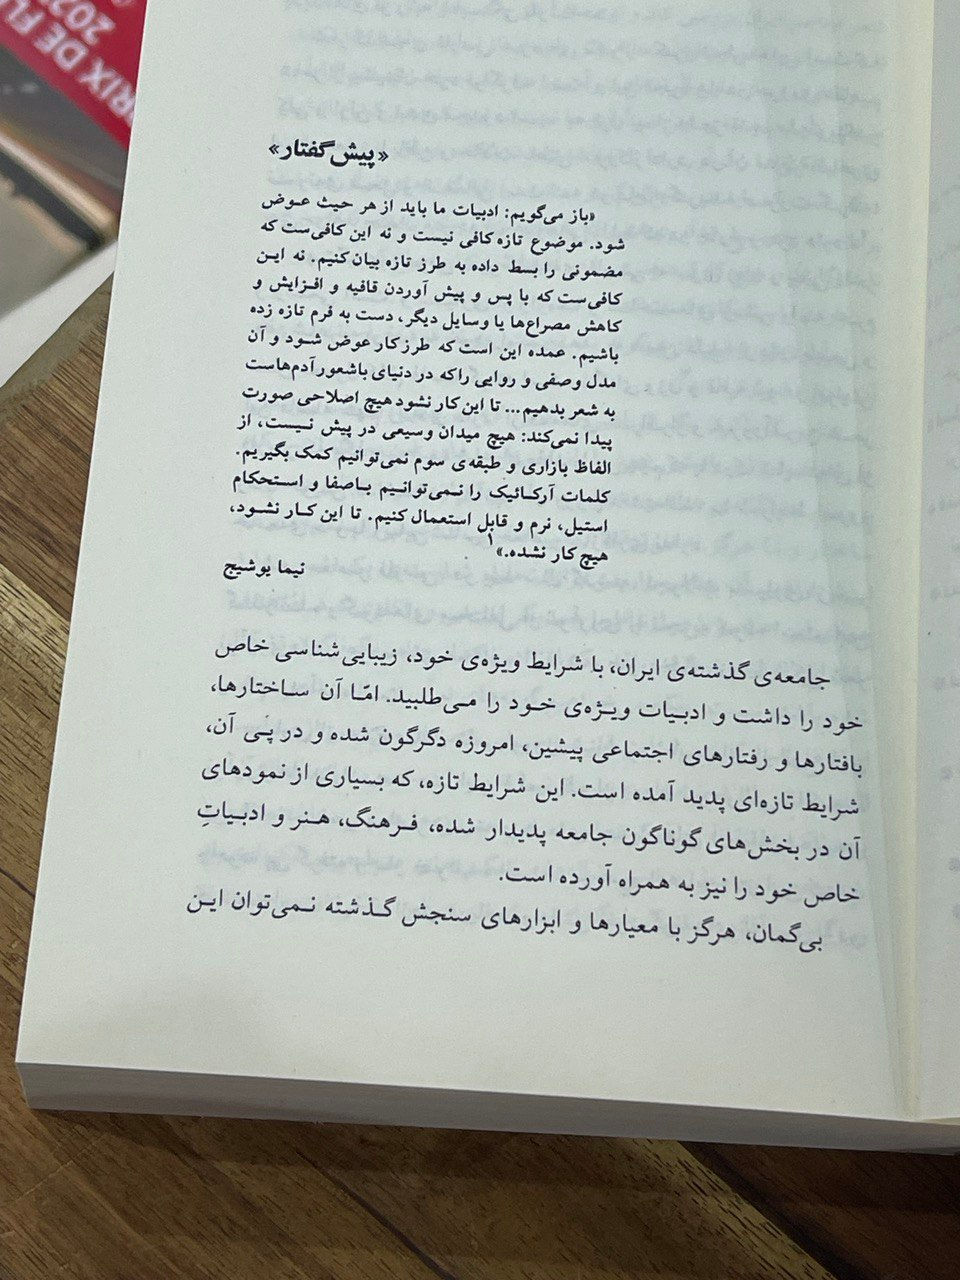 PRIX DE FL
202
«پیش‌گفتار»
«باز می‌گویم: ادبیات ما باید از هر حیث عوض
شود. موضوع تازه کافی نیست و نه این کافی‌ست که
مضمونی را بسط داده به طرز تازه بیان کنیم. نه این
کافی‌ست که با پس و پیش آوردن قافیه و افزایش و
کاهش مصراع‌ها یا وسایل دیگر، دست به فرم تازه زده
باشیم. عمده این است که طرز کار عوض شود و آن
مدل وصفی و روایی را که در دنیای باشعور آدم‌هاست
به شعر بدهیم... تا این کار نشود هیچ اصلاحی صورت
پیدا نمی‌کند: هیچ میدان وسیعی در پیش نیست، از
الفاظ بازاری و طبقه‌ی سوم نمی‌توانیم کمک بگیریم.
کلمات آرکائیک را نمی‌توانیم باصفا و استحکام
استیل، نرم و قابل استعمال کنیم. تا این کار نشود،
هیچ کار نشده.»۱
نیما یوشیج
جامعه‌ی گذشته‌ی ایران، با شرایط ویژه‌ی خود، زیبایی‌شناسی خاص
خود را داشت و ادبیات ویژه‌ی خود را می‌طلبید. امّا آن ساختارها،
بافتارها و رفتارهای اجتماعی پیشین، امروزه دگرگون شده و در پی آن،
شرایط تازه‌ای پدید آمده است. این شرایط تازه، که بسیاری از نمودهای
آن در بخش‌های گوناگون جامعه پدیدار شده، فرهنگ، هنر و ادبیاتِ
خاص خود را نیز به همراه آورده است.
بی‌گمان، هرگز با معیارها و ابزارهای سنجش گذشته نمی‌توان این